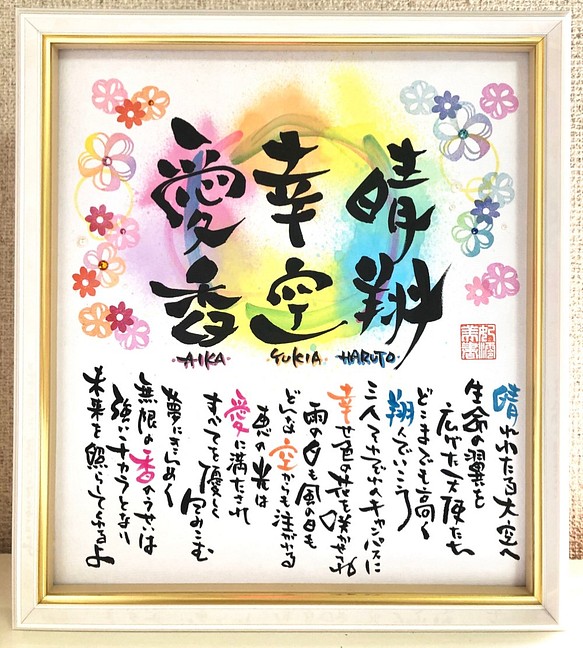 晴翔
幸空
愛香
HARUTO
YUKIA
AIKA
晴れわたる大空へ
生命の翼を
広げた天使たち
どこまでも高く
翔んでいこう
三人それぞれのキャンバスに
幸せ色の花を咲かせ
雨の日も風の日も
どんな空からも注がれる
恵の光は
愛に満たされ
すべてを優しく
包みこむ
夢にきらめく
無限の香のうせいは
強いチカラとなり
未来を照らしてくれるよ